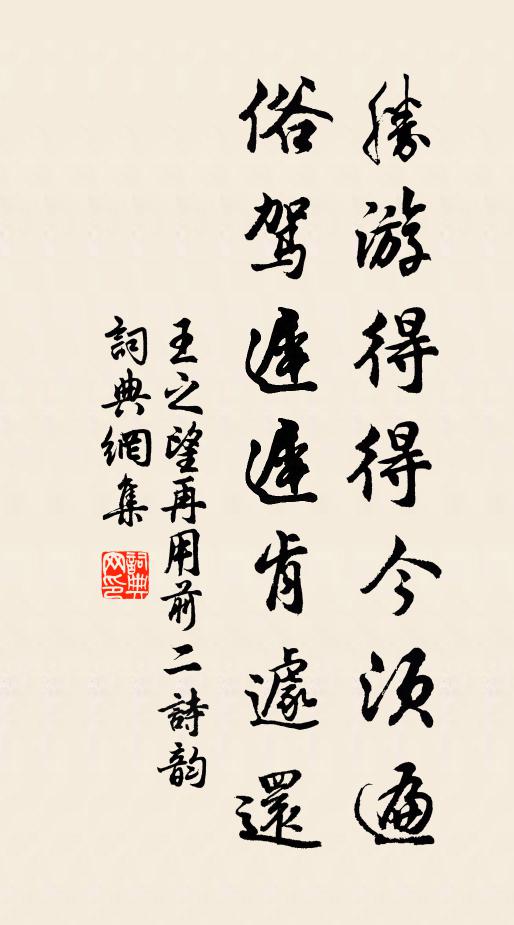 勝游得得今須遍
俗駕遲遲肯遽還
王之望再用前二詩韵
詞典網集
詞典網印